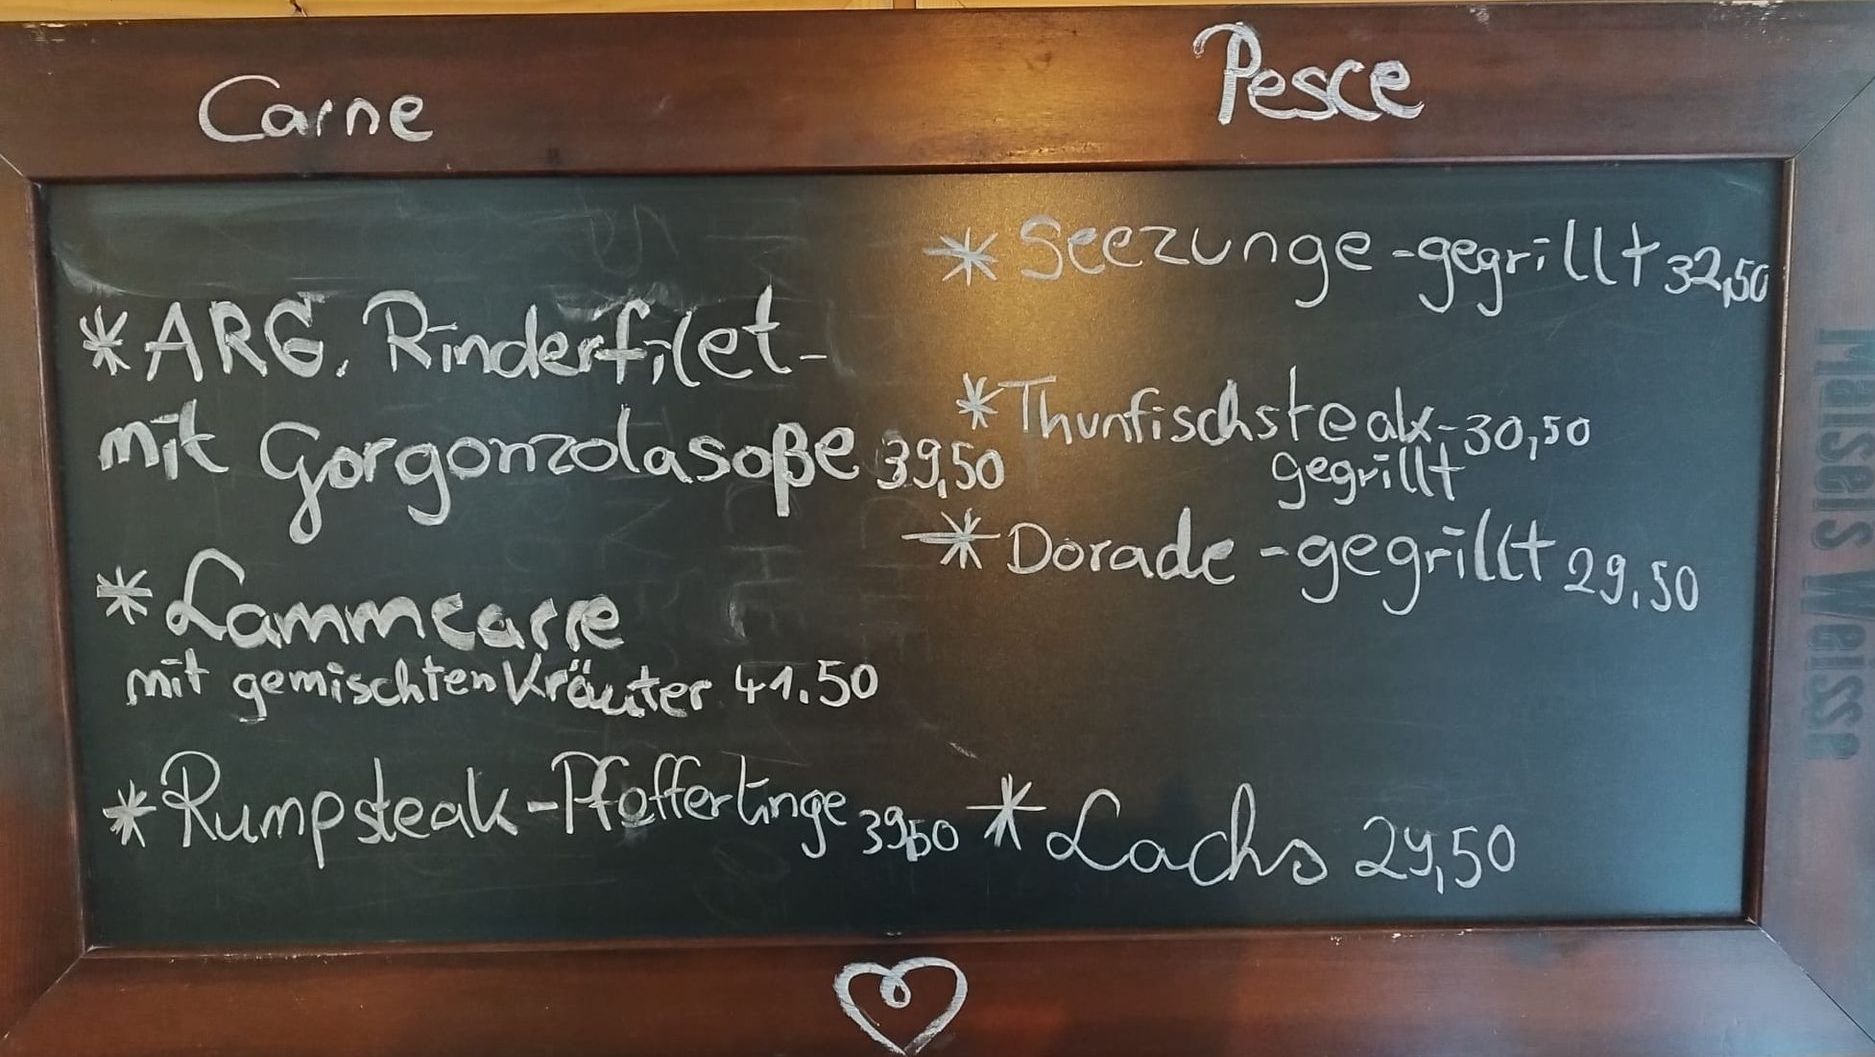 Carne
*ARG. Rinderfilet-
mit Gorgonzolasoße 39,50
*Lammcarre
mit gemischten Kräuter 41.50
*Rumpsteak-Pfefferlinge 39,50
Pesce
*Seezunge-gegrillt 32,50
*Thunfischsteak-30,50
gegrillt
*Dorade-gegrillt 29,50
*Lachs 29,50
Maisels Weisse